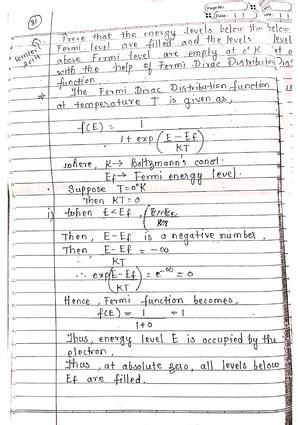 Page No.
Date
81
Q. Prove that the energy levels below the below
Winter 2014 Fermi level are filled and the levels level
above Fermi level are empty at 0°K at 0
with the help of Fermi Dirac Distribution
function.
⇒ The Fermi Dirac Distribution function
at temperature T is given as,
f(E) = 1
1 + exp (E - Ef
KT)
where, K → Boltzmann's const.
Ef → Fermi energy level.
• Suppose T=0°K
Then KT = 0
i) when E<Ef,
Then, E-Ef is a negative number.
Then E-Ef = -∞
KT
∴ exp(E-Ef) = e^-∞ = 0
KT
Hence, Fermi function becomes,
f(E) = 1 = 1
1+0
Thus, energy level E is occupied by the
electron.
Thus, at absolute zero, all levels below
Ef are filled.